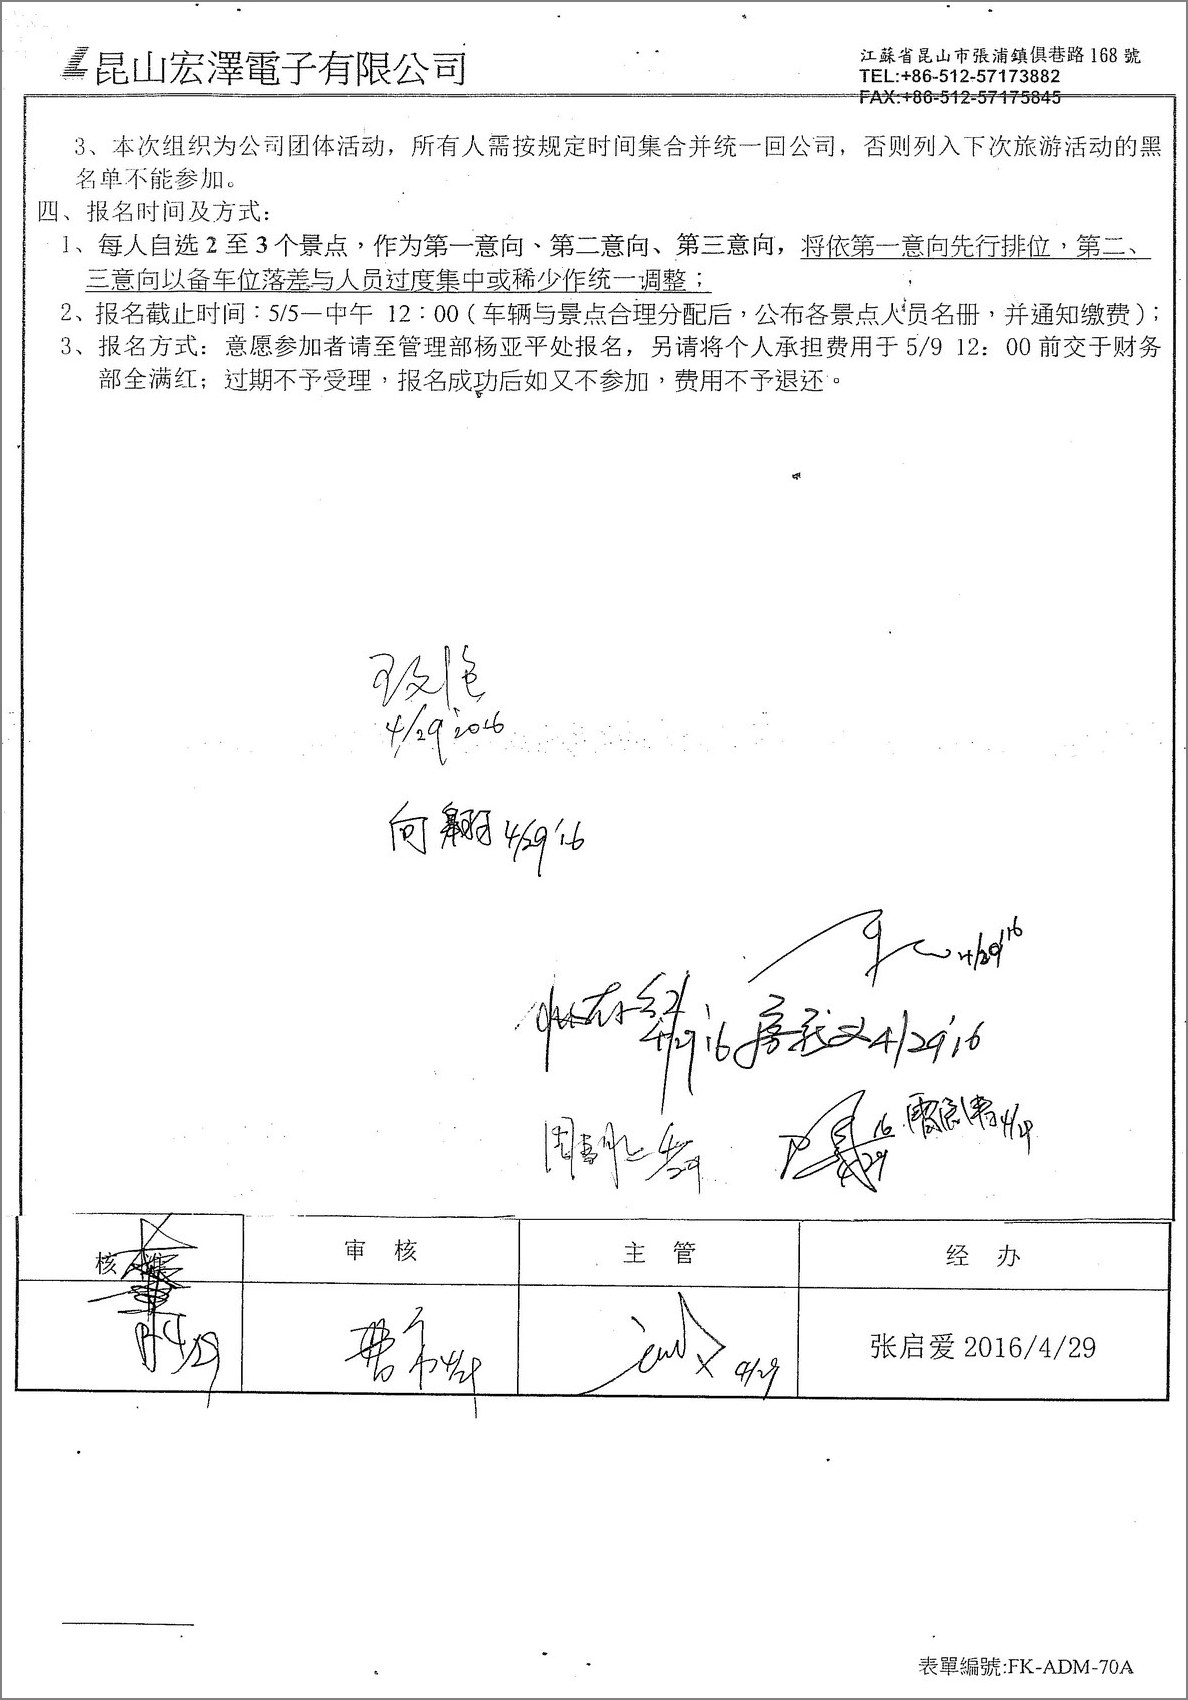 昆山宏澤電子有限公司
江蘇省昆山市張浦鎮俱巷路 168 號
TEL:+86-512-57173882
FAX:+86-512-57175845
3、本次组织为公司团体活动，所有人需按规定时间集合并统一回公司，否则列入下次旅游活动的黑
名单不能参加。
四、报名时间及方式：
1、每人自选 2 至 3 个景点，作为第一意向、第二意向、第三意向，将依第一意向先行排位，第二、
三意向以备车位落差与人员过度集中或稀少作统一调整；
2、报名截止时间：5/5—中午 12：00（车辆与景点合理分配后，公布各景点人员名册，并通知缴费）；
3、报名方式：意愿参加者请至管理部杨亚平处报名，另请将个人承担费用于 5/9 12：00 前交于财务
部全满红；过期不予受理，报名成功后如又不参加，费用不予退还。
4/29'2016
向翱 4/29'16
4/29'16
4/29'16
4/29'16
4/29
16
4/29
4/29
核 审 核 主 管 经 办
4/29
4/29
4/29
张启爱 2016/4/29
表單編號:FK-ADM-70A